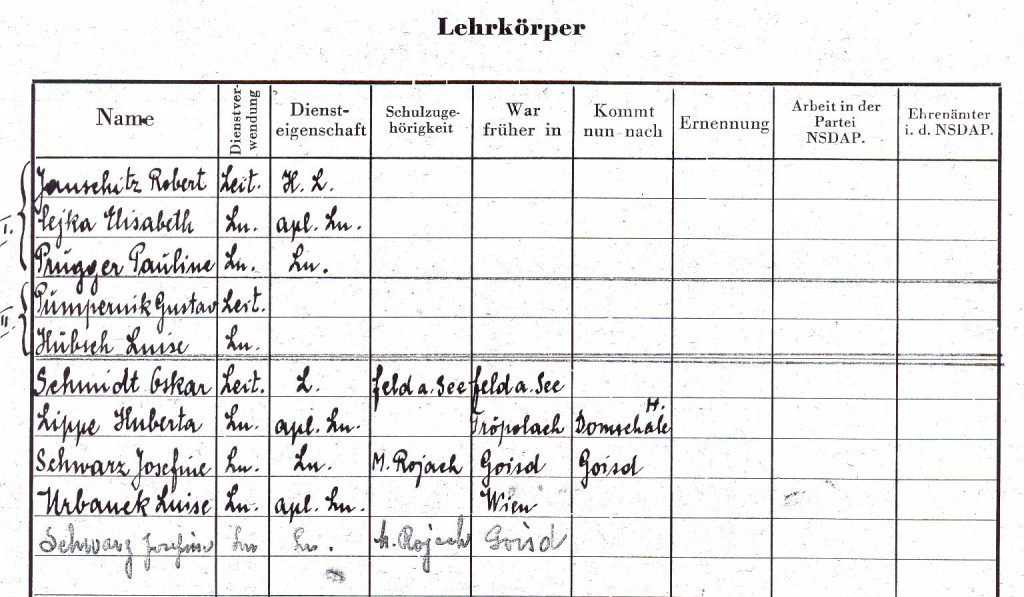 Lehrkörper
Name Dienstver-wendung Dienst-eigenschaft Schulzuge-hörigkeit War früher in Kommt nun nach Ernennung Arbeit in der Partei NSDAP. Ehrenämter i. d. NSDAP.
I. Jauschitz Robert Leit. H. L.
Cejka Elisabeth Ln. apl. Ln.
Prugger Pauline Ln. Ln.
II Pumpernik Gustav Leit.
Hübsch Luise Ln.
Schmidt Oskar Leit. L. feld a. See feld a. See
Lippe Huberta Ln. apl. Ln. Tröpolach Domschale H.
Schwarz Josefine Ln. Ln. M. Rojach Goisd Goisd
Urbanek Luise Ln. apl. Ln. Wien
Schwarz Josefine Ln Ln. M. Rojach Goisd